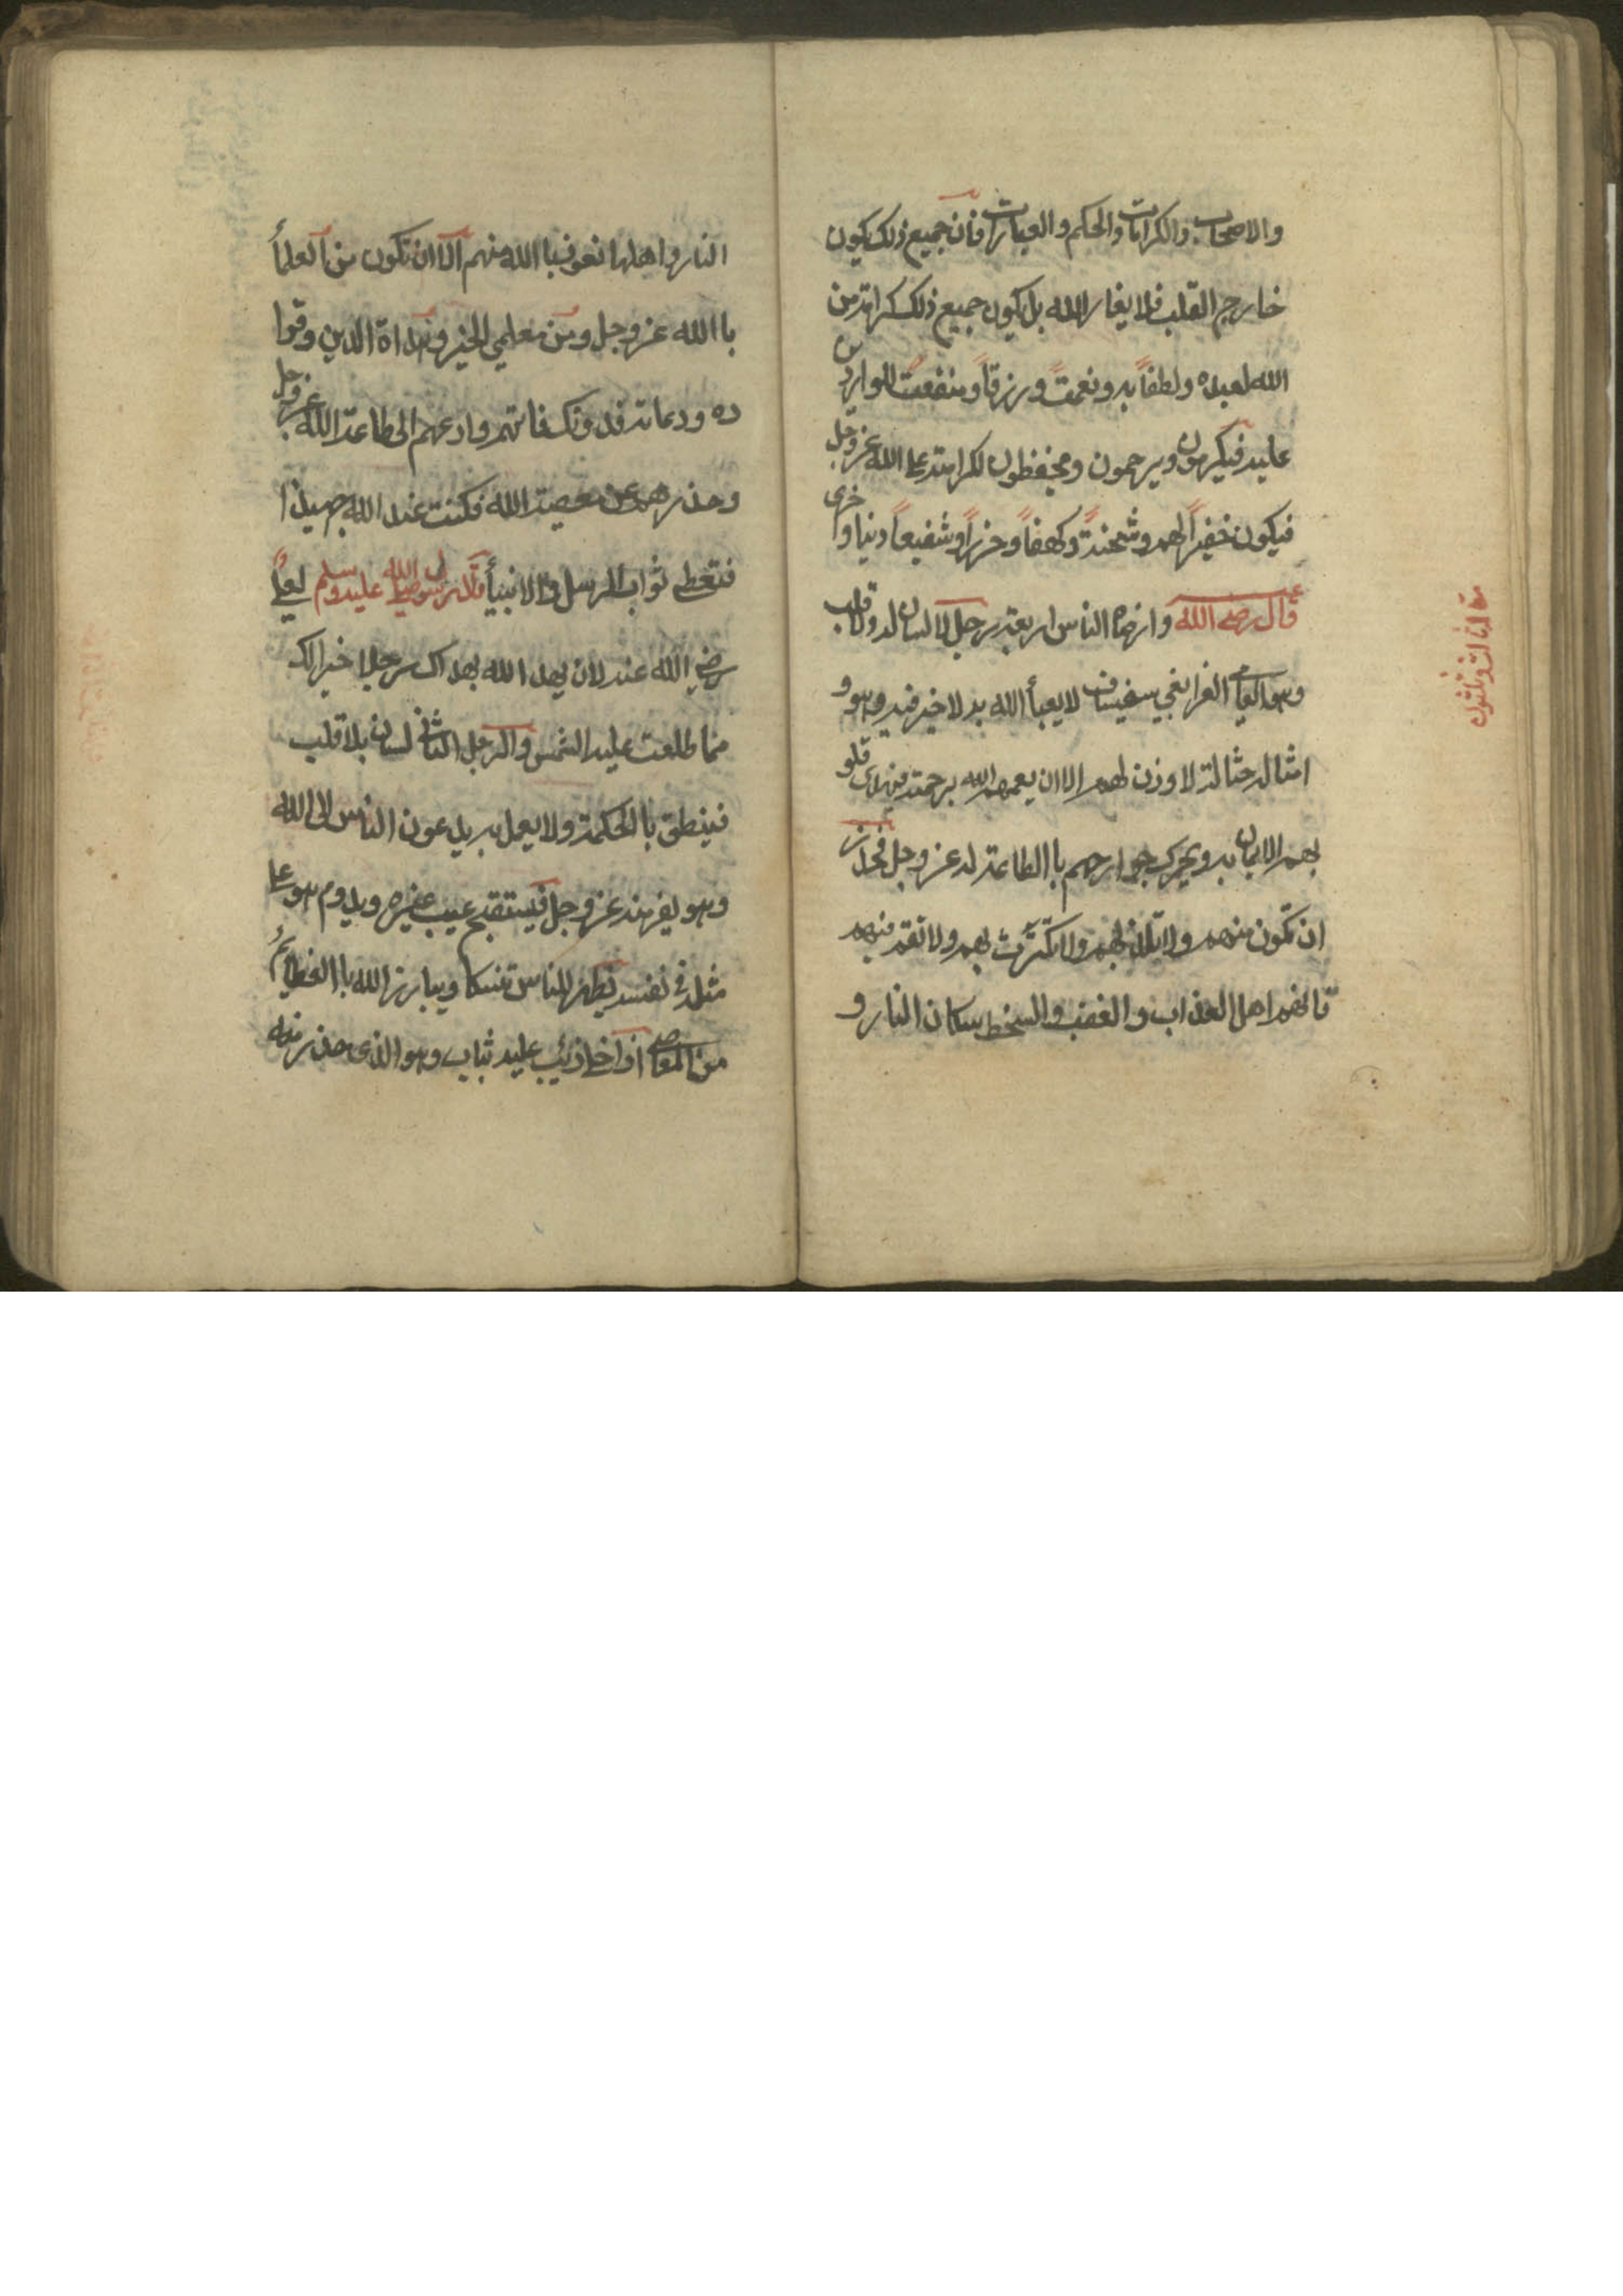 والاصحاب والكرامات والحكم والعبارات فان جميع ذلك يكون
خارج القلب فلا يغار الله بل يكون جميع ذلك كرامة من
الله لعبده ولطفاً به ونعمةً ورزقاً ومنفعتً للواردين
عليه فيكرمون ويرحمون ويحفظون لكرامته على الله عز وجل
فيكون خفيراً لهم وشحنةً وكهفاً وحرزاً وشفيعاً دنيا واخرى
قال رضى الله عنه والناس اربعة رجل لا لسان له ولا قلب
وهو العاصى الغر الغبي سفيساف لا يعبأ الله به لا خير فيه وهو و
امثاله حثالة لا وزن لهم الا ان يعمهم الله برحمته فيهدى قلو
بهم للايمان به ويحرك جوارحهم باالطاعة له عز وجل فحذار
ان تكون منهم ولا لهم ولا تكترث بهم ولا تقم فيهم
فانهم اهل العذاب والغضب والسخط سكان النار و
مقالة الثالثة وثلثون
النار واهلها نعوذ باالله منهم الا ان تكون من العلمأ
باالله عز وجل ومن معلمي الخير وهداة الدين وقوا
ده ودعاته فدونك فاتهم وادعهم الى طاعة الله عز وجل
وحذرهم عن معصية الله فكنت عند الله جهبذا
فتعطى ثواب الرسل والانبيأ قال رسول الله صلى الله عليه وسلم لعلي
رضي الله عنه لان يهد الله بهداك رجلا خيرا لك
مما طلعت عليه الشمس والرجل الثانى لسان بلا قلب
فينطق باالحكمة ولا يعمل به يدعون الناس الى الله
وهو يفر منه عز وجل فيستقبح عيب غيره ويدوم هو على
مثله في نفسه يظهر للناس تنسكا ويبارز الله باالعظائم
من المعاصى اذا خلا ذئب عليه ثياب وهو الذى حذر منه